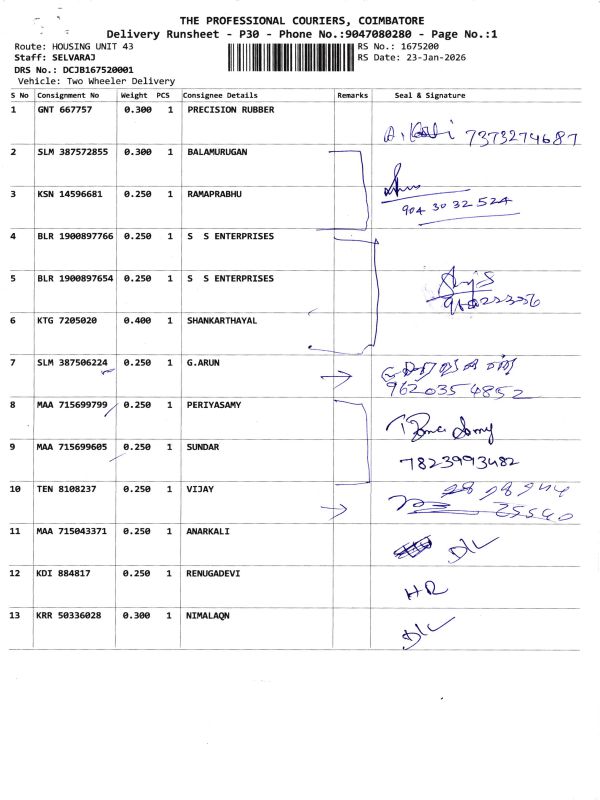 THE PROFESSIONAL COURIERS, COIMBATORE
Delivery Runsheet - P30 - Phone No.:9047080280 - Page No.:1
Route: HOUSING UNIT 43
RS No.: 1675200
Staff: SELVARAJ
RS Date: 23-Jan-2026
DRS No.: DCJB167520001
Vehicle: Two Wheeler Delivery
S No Consignment No Weight PCS Consignee Details Remarks Seal & Signature
1 GNT 667757 0.300 1 PRECISION RUBBER
7373274687
2 SLM 387572855 0.300 1 BALAMURUGAN
3 KSN 14596681 0.250 1 RAMAPRABHU
904 30 32 524
4 BLR 1900897766 0.250 1 S S ENTERPRISES
5 BLR 1900897654 0.250 1 S S ENTERPRISES
6 KTG 7205020 0.400 1 SHANKARTHAYAL
7 SLM 387506224 0.250 1 G.ARUN
9620354852
8 MAA 715699799 0.250 1 PERIYASAMY
9 MAA 715699605 0.250 1 SUNDAR
7823993482
10 TEN 8108237 0.250 1 VIJAY
25540
11 MAA 715043371 0.250 1 ANARKALI
D/L
12 KDI 884817 0.250 1 RENUGADEVI
HR
13 KRR 50336028 0.300 1 NIMALAQN
D/L